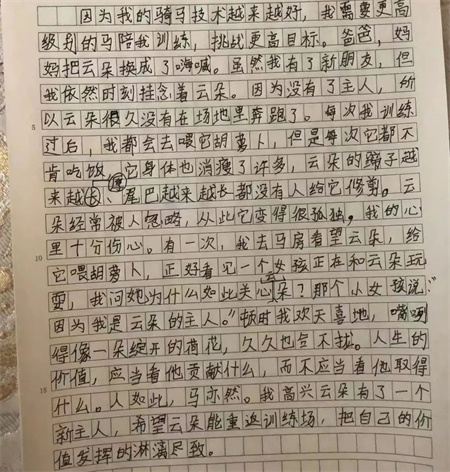 因为我的骑马技术越来越好，我需要更高
级别的马陪我训练，挑战更高目标。爸爸，妈
妈把云朵换成了嗨喊。虽然我有了新朋友，但
我依然时刻挂念着云朵。因为没有了主人，所
以云朵很久没有在场地里奔跑了。每次我训练
5
过后，我都会去喂它胡萝卜，但是每次它都不
肯吃饭，它身体也消瘦了许多，云朵的鬃子越
来越长、尾巴越来越长都没有人给它修剪。云
朵经常被人忽略，从此它变得很孤独。我的心
里十分伤心。有一次，我去马房看望云朵，给
10
它喂胡萝卜，正好看见一个女孩正在和云朵玩
耍，我问她为什么如此关心云朵？那个小女孩说："
因为我是云朵的主人。"顿时我欢天喜地，嘴咧
得像一朵绽开的荷花，久久也合不拢。人生的
价值，应当看他贡献什么，而不应当看他取得
15
什么。人如此，马亦然。我高兴云朵有了一个
新主人，希望云朵能重返训练场，把自己的价
值发挥的淋漓尽致。